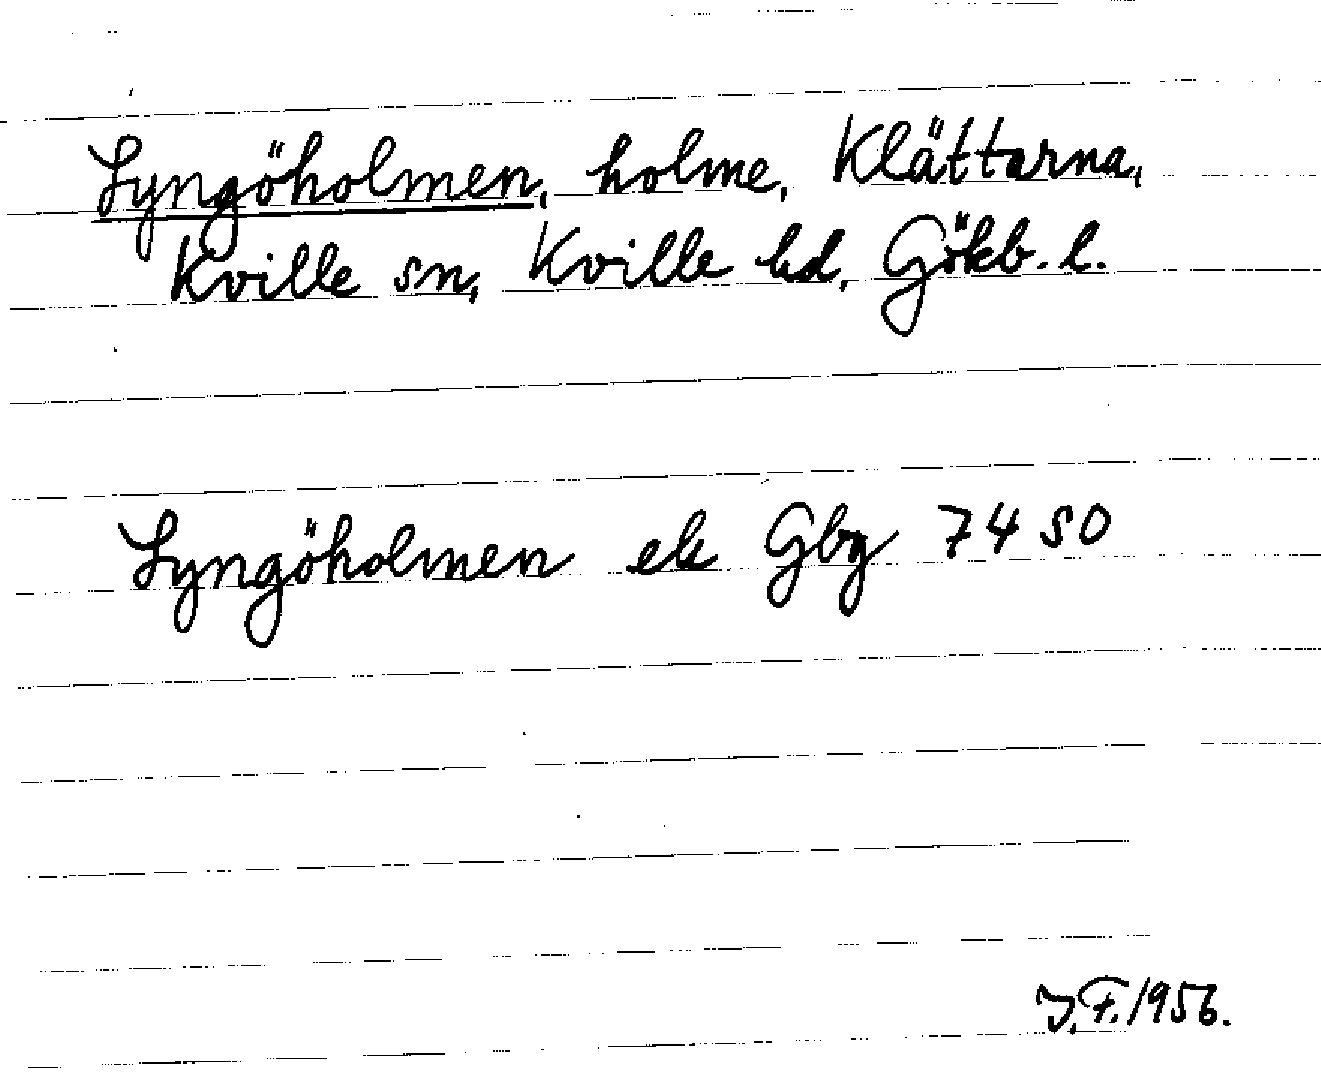 Lyngöholmen, holme, Klättarna,
Kville sn, Kville hd, Gökb. l.
Lyngöholmen ek Gbg 74 SO
J.F. 1956.